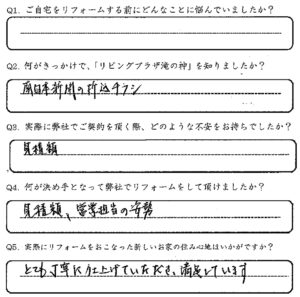 Q1. ご自宅をリフォームする前にどんなことに悩んでいましたか?
Q2. 何がきっかけで、「リビングプラザ滝の神」を知りましたか?
南日本新聞の折込チラシ
Q3. 実際に弊社でご契約を頂く際、どのような不安をお持ちでしたか?
見積額
Q4. 何が決め手となって弊社でリフォームをして頂けましたか?
見積額、営業担当の姿勢
Q5. 実際にリフォームをおこなった新しいお家の住み心地はいかがですか?
とても丁寧に仕上げていただき、満足しています